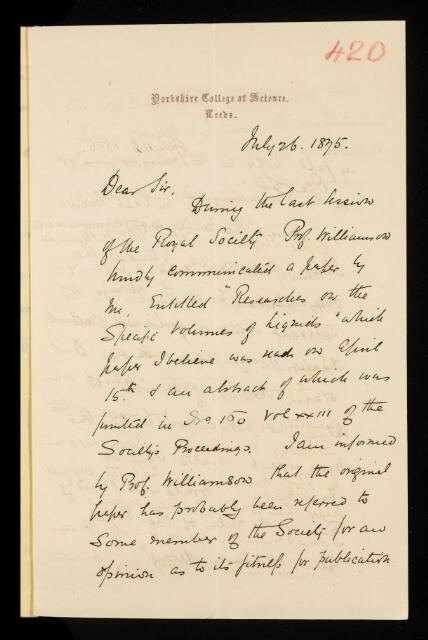 420
Yorkshire College of Science.
Leeds.
July 26. 1875.
Dear Sir.
During the last session
of the Royal Society Prof. Williamson
kindly communicated a paper by
me, Entitled "Researches on the
Specific Volumes of Liquids" which
paper I believe was read on April
15th & an abstract of which was
printed in No 160 Vol xxiii of the
Society's Proceedings. I am informed
by Prof. Williamson that the original
paper has probably been referred to
some member of the Society for an
opinion as to its fitness for publication